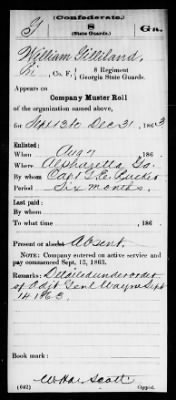 (Confederate.)
G 8 Ga.
(State Guards.)
William Gilliland,
Pri, Co. F, 8 Regiment
Georgia State Guards.
Appears on
Company Muster Roll
of the organization named above,
for Sept 13 to Dec 31, 1863
Enlisted:
When Aug 7, 186 .
Where Alpharetta Ga.
By whom Capt T. C. Rucker
Period Six months.
Last paid:
By whom
To what time , 186 .
Present or absent Absent.
NOTE: Company entered on active service and
pay commenced Sept. 13, 1863.
Remarks: Detailed under order
of Adjt Genl Wayne Sept
14 1863.
Book mark:
(642) Copyist.